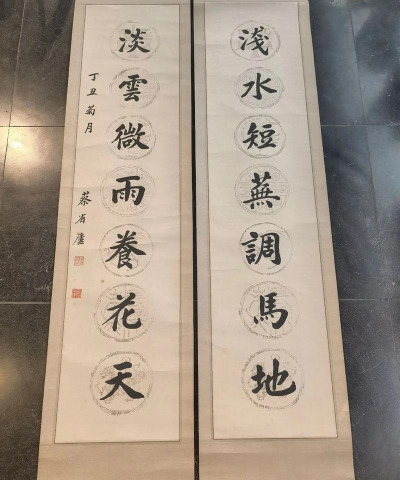 淺水短蕪調馬地
淡雲微雨養花天
丁丑菊月
蔡省廬